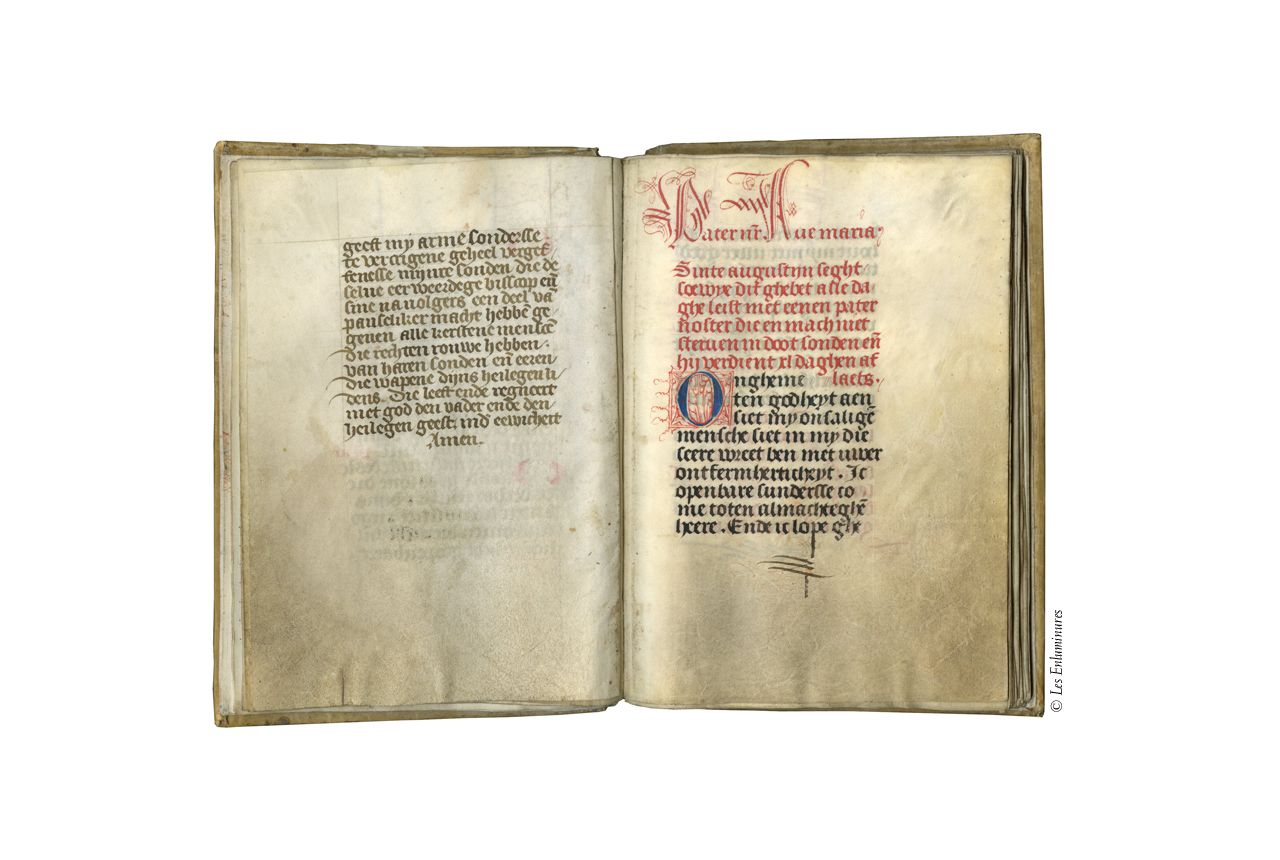 geeft my arme sondersse
te vercrigene geheel verget
tenesse mijnre sonden die de
selue eerweerdege bisscop eñ
sine nauolgers een deel vā
pauseliker macht hebbē ge
geuen alle kerstene menscē
die rechten rouwe hebben
van haren sonden eñ eeren
die wapene dijns heilegen li
dens. Die leeft ende regneert
met god den vader ende den
heilegen geest. ind eewicheit
Amen.
Pater nr̄ Aue maria.
Sinte augustijn seght
soe wye dit ghebet alle da
ghe leist met eenen pater
noster die en mach niet
steruen in doot sonden eñ
hij verdient xl daghen af
laets.
Ongheme
ten godheyt aen
siet my onsalige
mensche siet in my die
seere wreet ben met uwer
ontfermherticheyt. Ic
openbare sundersse co
me toten almachteghē
heere. Ende ic lope ghe
© Les Enluminures